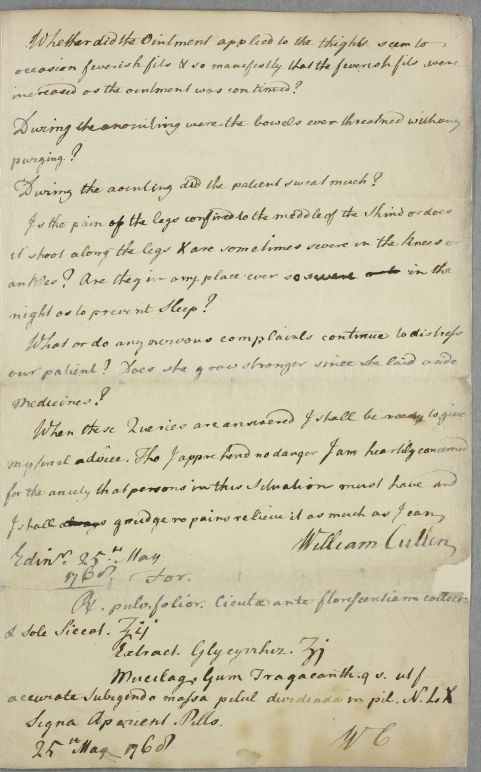 Whether did the Ointment applied to the thighs seem to
occasion feverish fits & so manefestly that the feverish fits were
increased as the ointment was continued?
During the anointing were the bowels ever threatned with any
purging?
During the aointing did the patient sweat much?
Is the pain of the legs confined to the middle of the Shins or does
it shoot along the legs & are sometimes severe in the knees or
ankles? Are they in any place ever so severe in the
night as to prevent Sleep?
What or do any nervous complaints continue to distress
our patient? Does she grow stronger since she laid aside
medicines?
When these Queries are answered I shall be ready to give
my advice. Tho I apprehend no danger I am heartily concerned
for the anxiety that persons in this Situation must have and
I shall always grudge no pains relieve it as much as I can
William Cullen
Edinr. 25th May
1768. For.
℞. pulv. folior. Cicutæ ante florescentiam collect.
& sole Siccat. ʒij
Extract. Glycyrrhiz. ʒj
Mucilag. Gum Tragacanth. q s. ut f
accurate Subigendo massa pilul dividenda in pil. N. LX
Signa Aperient Pills.
25th May 1768
W C